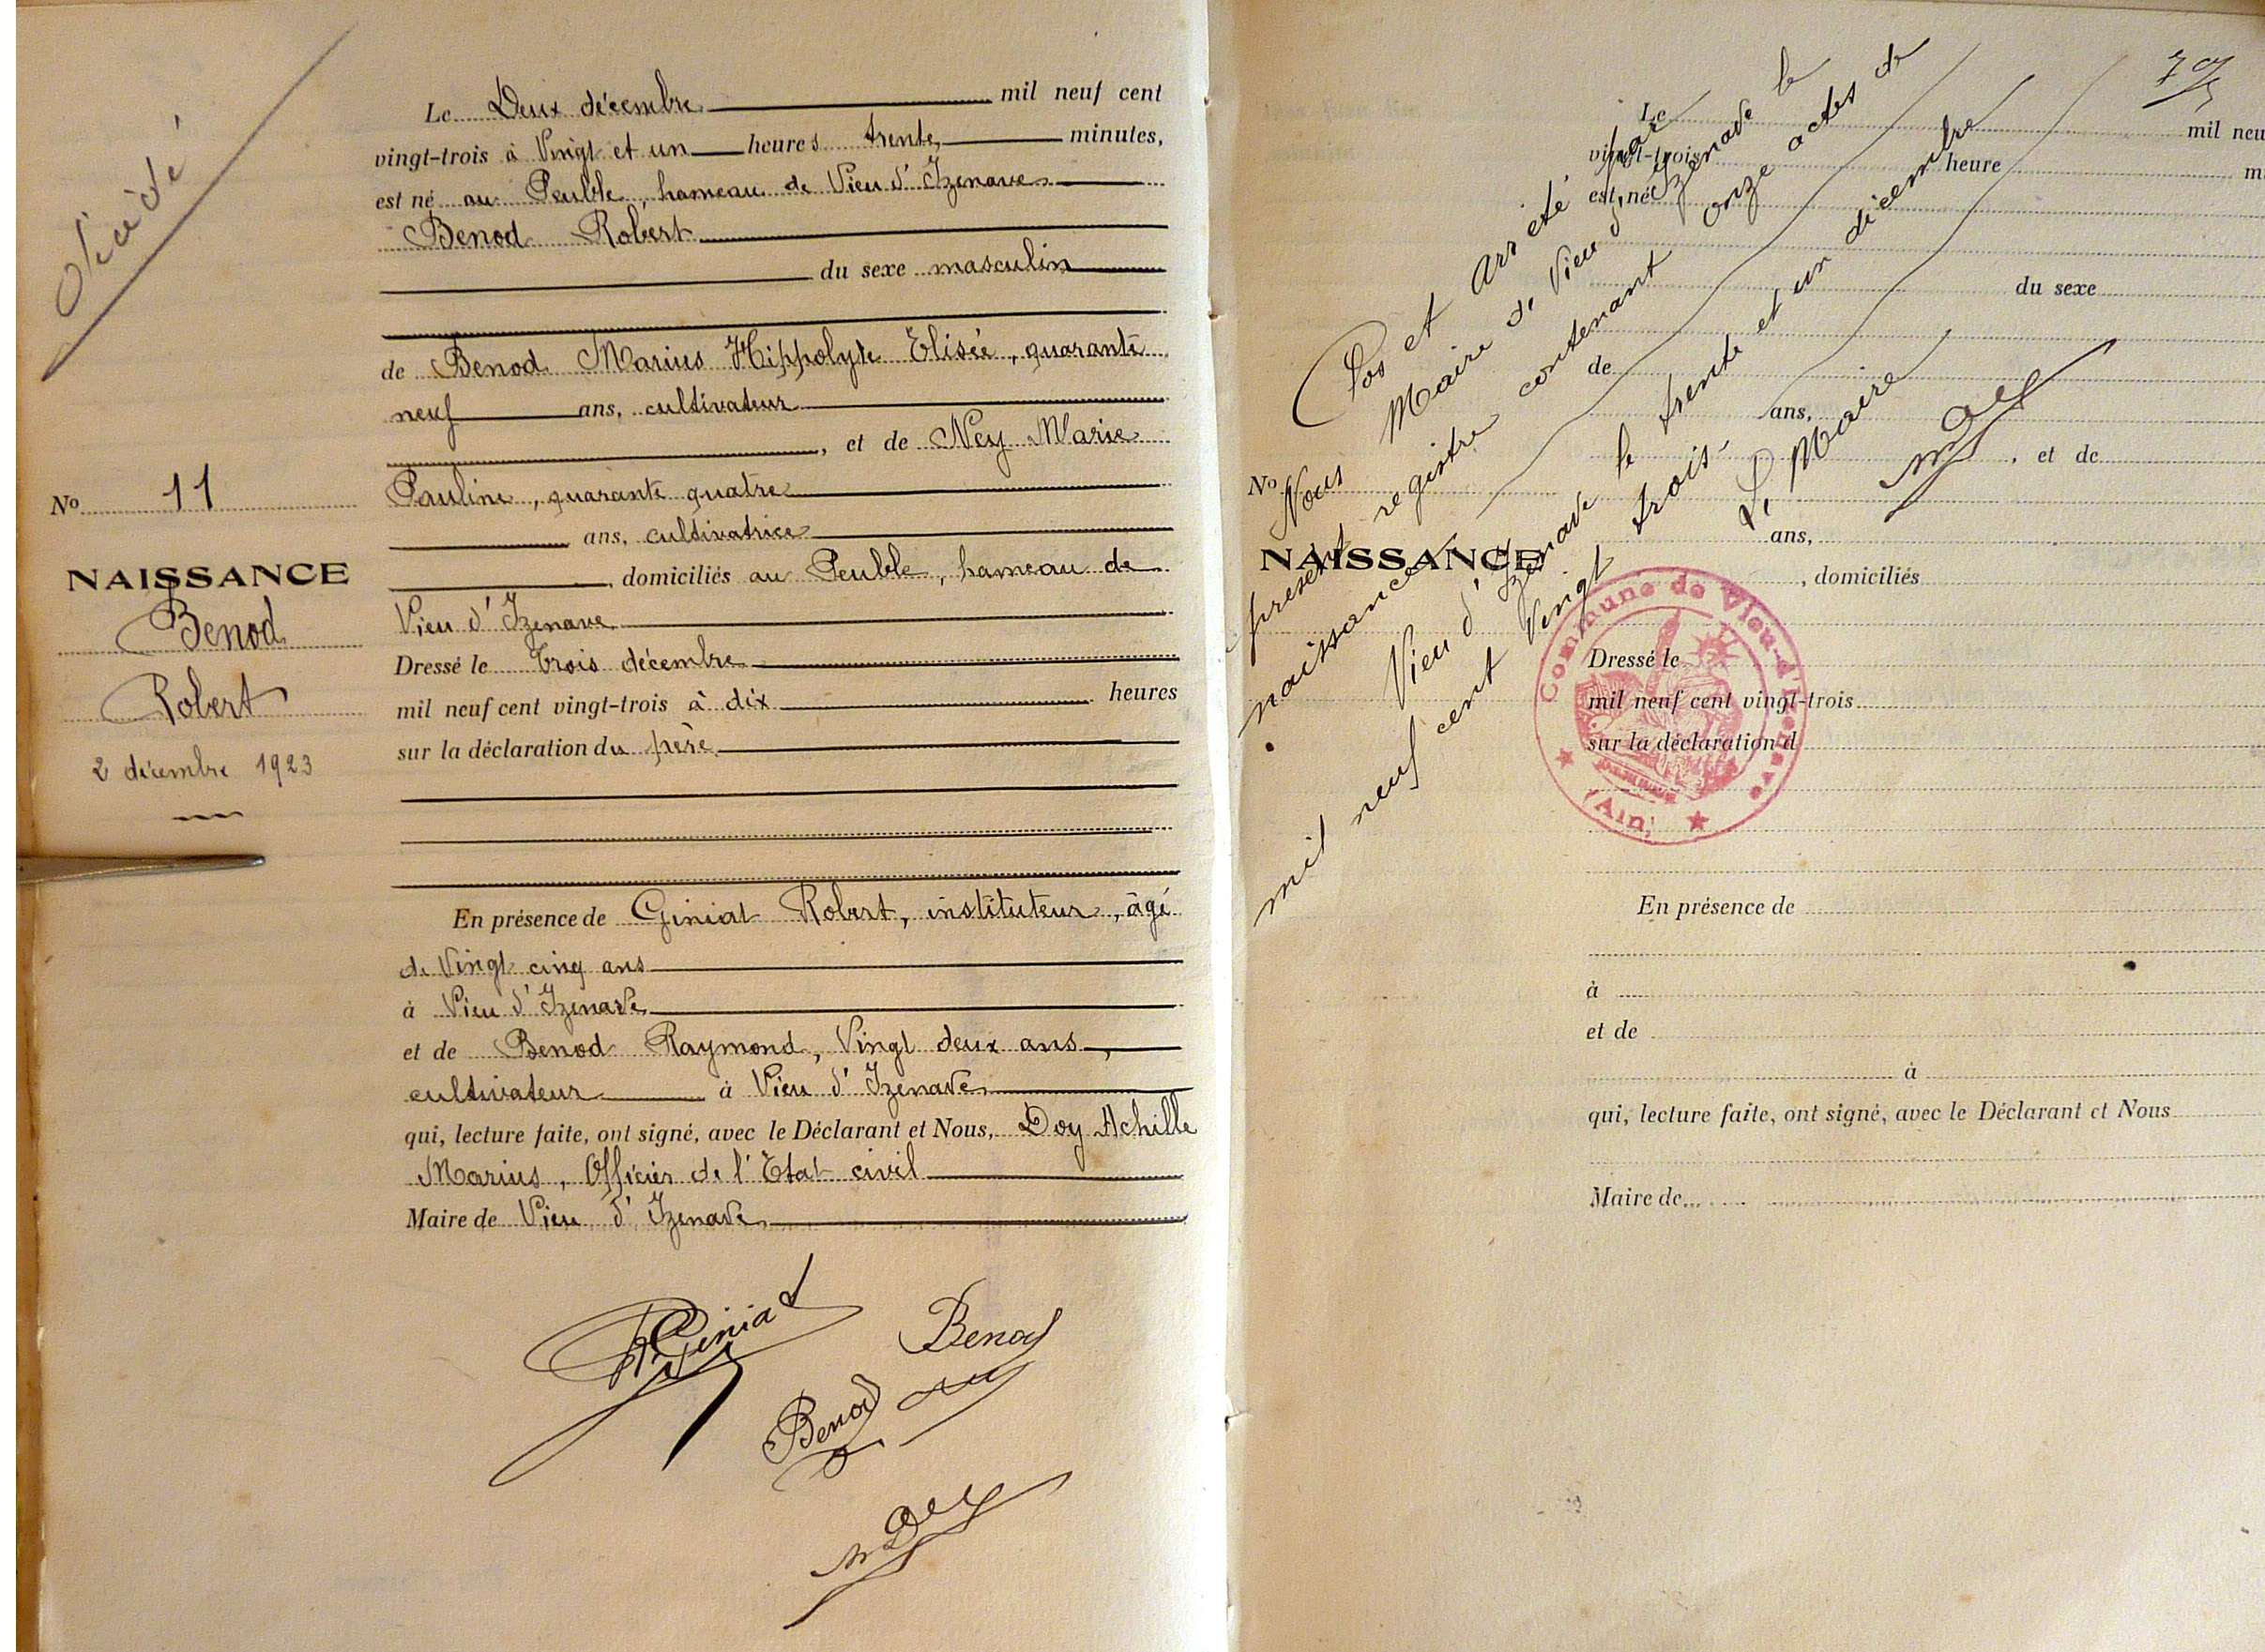 Décédé
Le Deux décembre mil neuf cent
vingt-trois à Vingt et un heures trente, minutes,
est né au Peuble, hameau de Vieu d'Izenave
Benod Robert
du sexe masculin
de Benod Marius Hippolyte Elisée, quarante
neuf ans, cultivateur
, et de Ney Marie
Pauline, quarante quatre
ans, cultivatrice
, domiciliés au Peuble, hameau de
Vieu d'Izenave
Dressé le trois décembre
mil neuf cent vingt-trois à dix heures
sur la déclaration du père
En présence de Giniat Robert, instituteur, âgé
de Vingt cinq ans
à Vieu d'Izenave
et de Benod Raymond, Vingt deux ans,
cultivateur à Vieu d'Izenave
qui, lecture faite, ont signé, avec le Déclarant et Nous, Doy Achille
Marius, Officier de l'Etat civil
Maire de Vieu d'Izenave
No 11
NAISSANCE
Benod
Robert
2 décembre 1923
R Giniat
Benod
Benod
Doy
Clos et Arrêté par
Nous Maire de Vieu d'Izenave le
présent registre contenant onze actes de
naissance
Vieu d'Izenave le trente et un décembre
mil neuf cent Vingt trois
Le Maire
Doy
Le mil neu
vingt-trois heure m
est né
du sexe
de
ans,
, et de
ans,
, domiciliés
Dressé le
mil neuf cent vingt-trois
sur la déclaration d
No
NAISSANCE
Commune de Vieu-d'Izenave
(Ain)
En présence de
à
et de
à
qui, lecture faite, ont signé, avec le Déclarant et Nous
Maire de